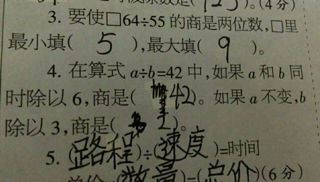 3. 要使□64÷55的商是两位数,□里
最小填( 5 ),最大填( 9 )。
4. 在算式a÷b=42中,如果a和b同
时除以6,商是( 42)。如果a不变,b
除以3,商是( )。
5. (路程)÷(速度)=时间
(数量)=(总价)(6分)